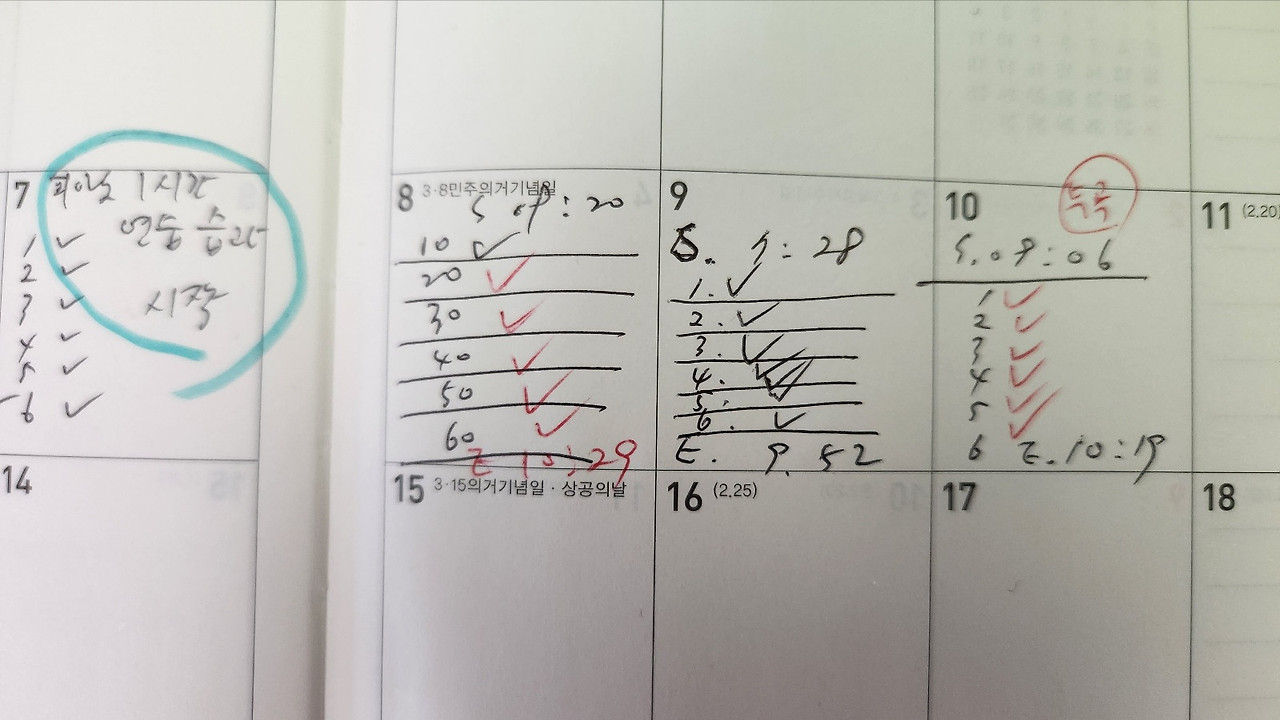 7 피아노 1시간
연습 습관
시작
1 ✓
2 ✓
3 ✓
4 ✓
5 ✓
6 ✓
8 3·8민주의거기념일
S 09:20
10 ✓
20 ✓
30 ✓
40 ✓
50 ✓
60 ✓
E 10:29
9
S. 9:28
1. ✓
2. ✓
3. ✓
4. ✓
5. ✓
6. ✓
E. 9.52
10
S.09:06
1 ✓
2 ✓
3 ✓
4 ✓
5 ✓
6 ✓
E.10:19
11 (2.20)
14
15 3·15의거기념일 · 상공의날
16 (2.25)
17
18